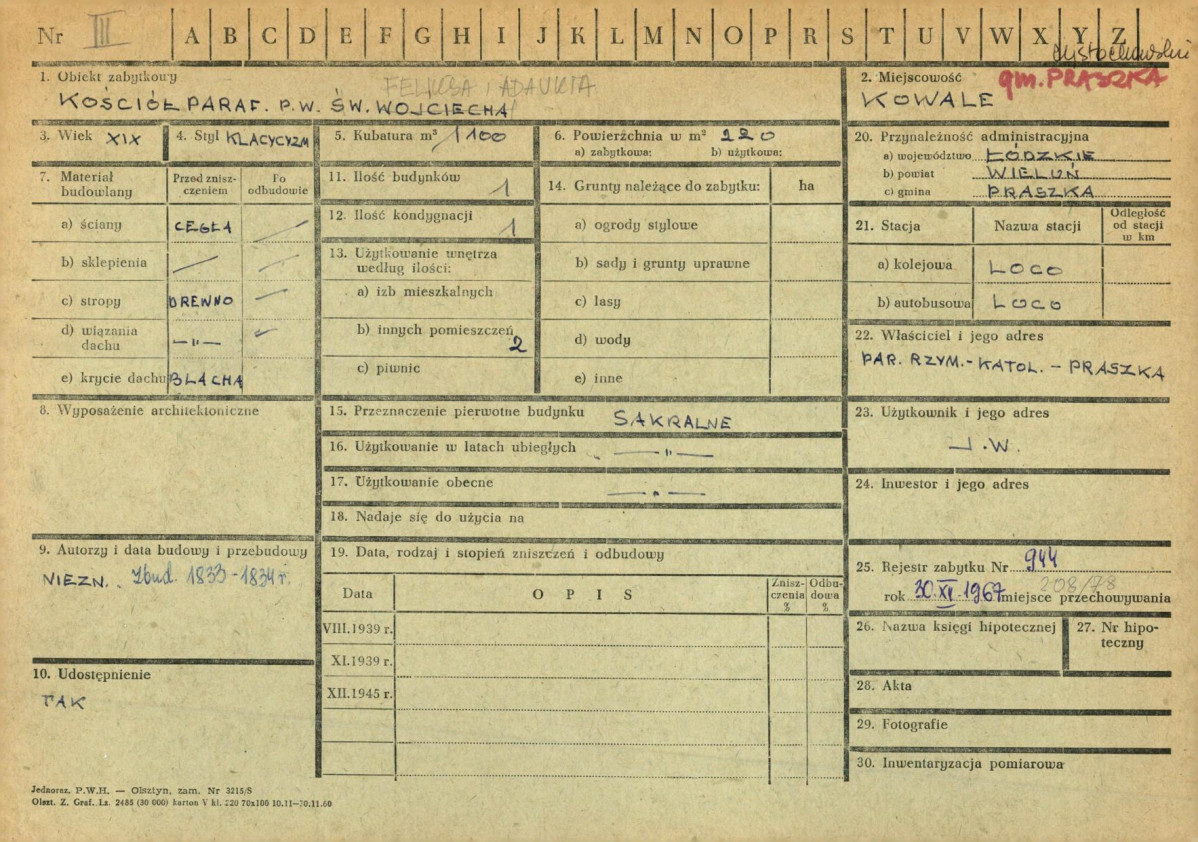 Nr III A B C D E F G H I J K L M N O P R S T U V W X Y Z
częstochowskie
1. Obiekt zabytkowy
FELIKSA I ADAUKTA
KOŚCIÓŁ PARAF. P.W. ŚW. WOJCIECHA
2. Miejscowość
gm. PRASZKA
KOWALE
3. Wiek XIX
4. Styl KLACYCYZM
5. Kubatura m³ 1100
6. Powierżchnia w m² 220
a) zabytkowa: b) użytkowa:
7. Materiał budowlany
Przed znisz-
czeniem
Po
odbudowie
a) ściany CEGŁA —
b) sklepienia — —
c) stropy DREWNO —
d) wiązania
dachu —"— —
e) krycie dachu BLACHA
8. Wyposażenie architektoniczne
9. Autorzy i data budowy i przebudowy
NIEZN. Zbud. 1833-1834 r.
10. Udostępnienie
TAK
11. Ilość budynków 1
12. Ilość kondygnacji 1
13. Użytkowanie wnętrza
według ilości:
a) izb mieszkalnych
b) innych pomieszczeń 2
c) piwnic
14. Grunty należące do zabytku: ha
a) ogrody stylowe
b) sady i grunty uprawne
c) lasy
d) wody
e) inne
15. Przeznaczenie pierwotne budynku SAKRALNE
16. Użytkowanie w latach ubiegłych —"—
17. Użytkowanie obecne —"—
18. Nadaje się do użycia na
19. Data, rodzaj i stopień zniszczeń i odbudowy
Data OPIS
Znisz-
czenia
%
Odbu-
dowa
%
VIII.1939 r.
XI.1939 r.
XII.1945 r.
20. Przynależność administracyjna
a) województwo ŁÓDZKIE
b) powiat WIELUŃ
c) gmina PRASZKA
21. Stacja Nazwa stacji
Odległość
od stacji
w km
a) kolejowa LOCO
b) autobusowa LOCO
22. Właściciel i jego adres
PAR. RZYM.-KATOL. - PRASZKA
23. Użytkownik i jego adres
J.W.
24. Inwestor i jego adres
25. Rejestr zabytku Nr 944
208/78
rok 30.XI.1967 miejsce przechowywania
26. Nazwa księgi hipotecznej
27. Nr hipo-
teczny
28. Akta
29. Fotografie
30. Inwentaryzacja pomiarowa
Jednoraz. P.W.H. — Olsztyn, zam. Nr 3215/S
Olszt. Z. Graf. Lz. 2485 (30 000) karton V kl. 220 70x100 10.11—30.11.60